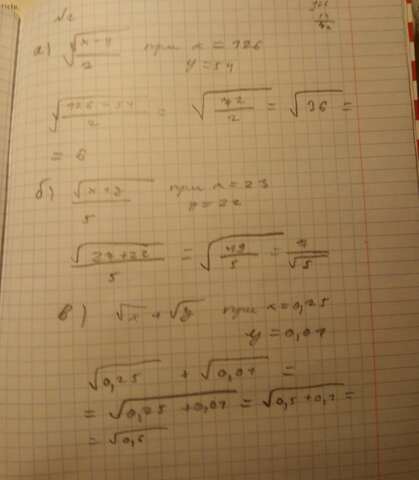 №2
а) √(x-y)/2 при x = 126
y = 54
√(126-54)/2 = √72/2 = √36 =
= 6
б) √(x+y)/5 при x = 27
y = 22
√(27+22)/5 = √49/5 = 7/√5
в) √x + √y при x = 0,25
y = 0,01
√0,25 + √0,01 =
= √0,25 + 0,01 = √0,5 + 0,1 =
= √0,6